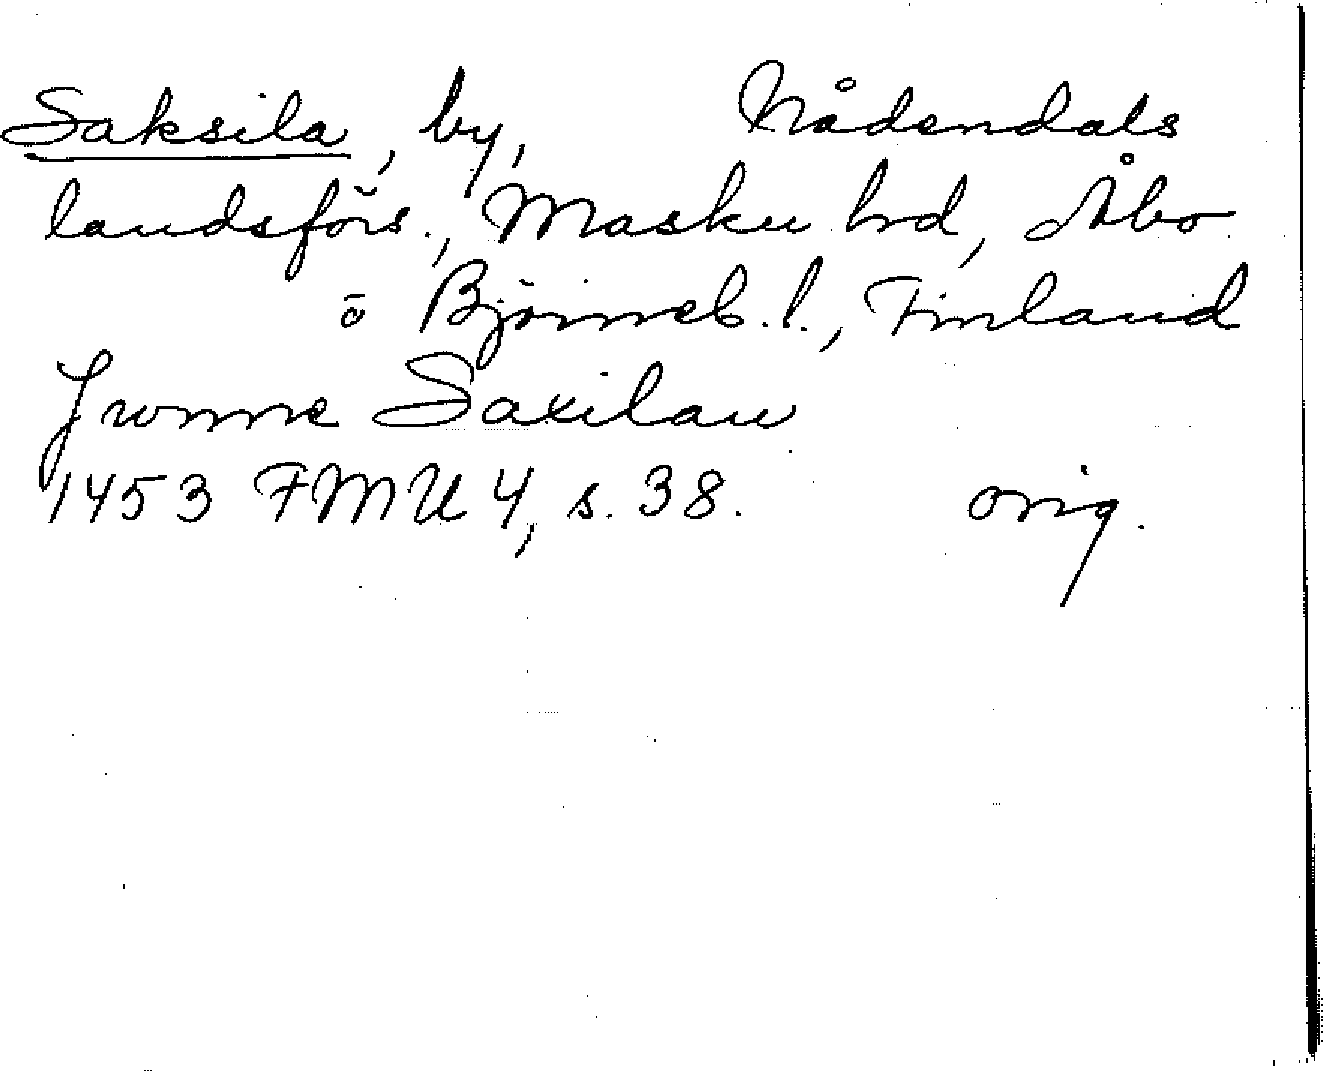 Saksila, by, Nådendals
landsförs., Masku hd, Åbo
o Björneb. l., Finland
Jwonne Saxilaw
1453 FMU 4, s. 38. orig.